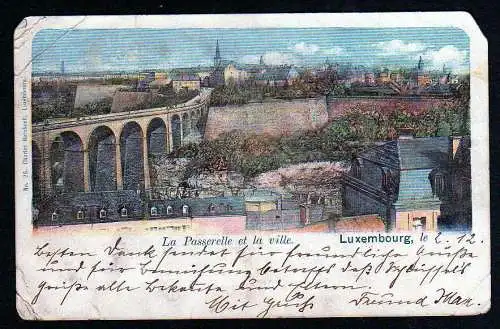 No. 26. Charles Bernhoeft, Luxembourg.
La Passerelle et la ville.
Luxembourg, le 2. 12.
Besten Dank sendet für freundliche Grüße
und für Bemühung betreffs des
grüße alle Bekannte und Eltern.
Mit Gruß Freund Max.